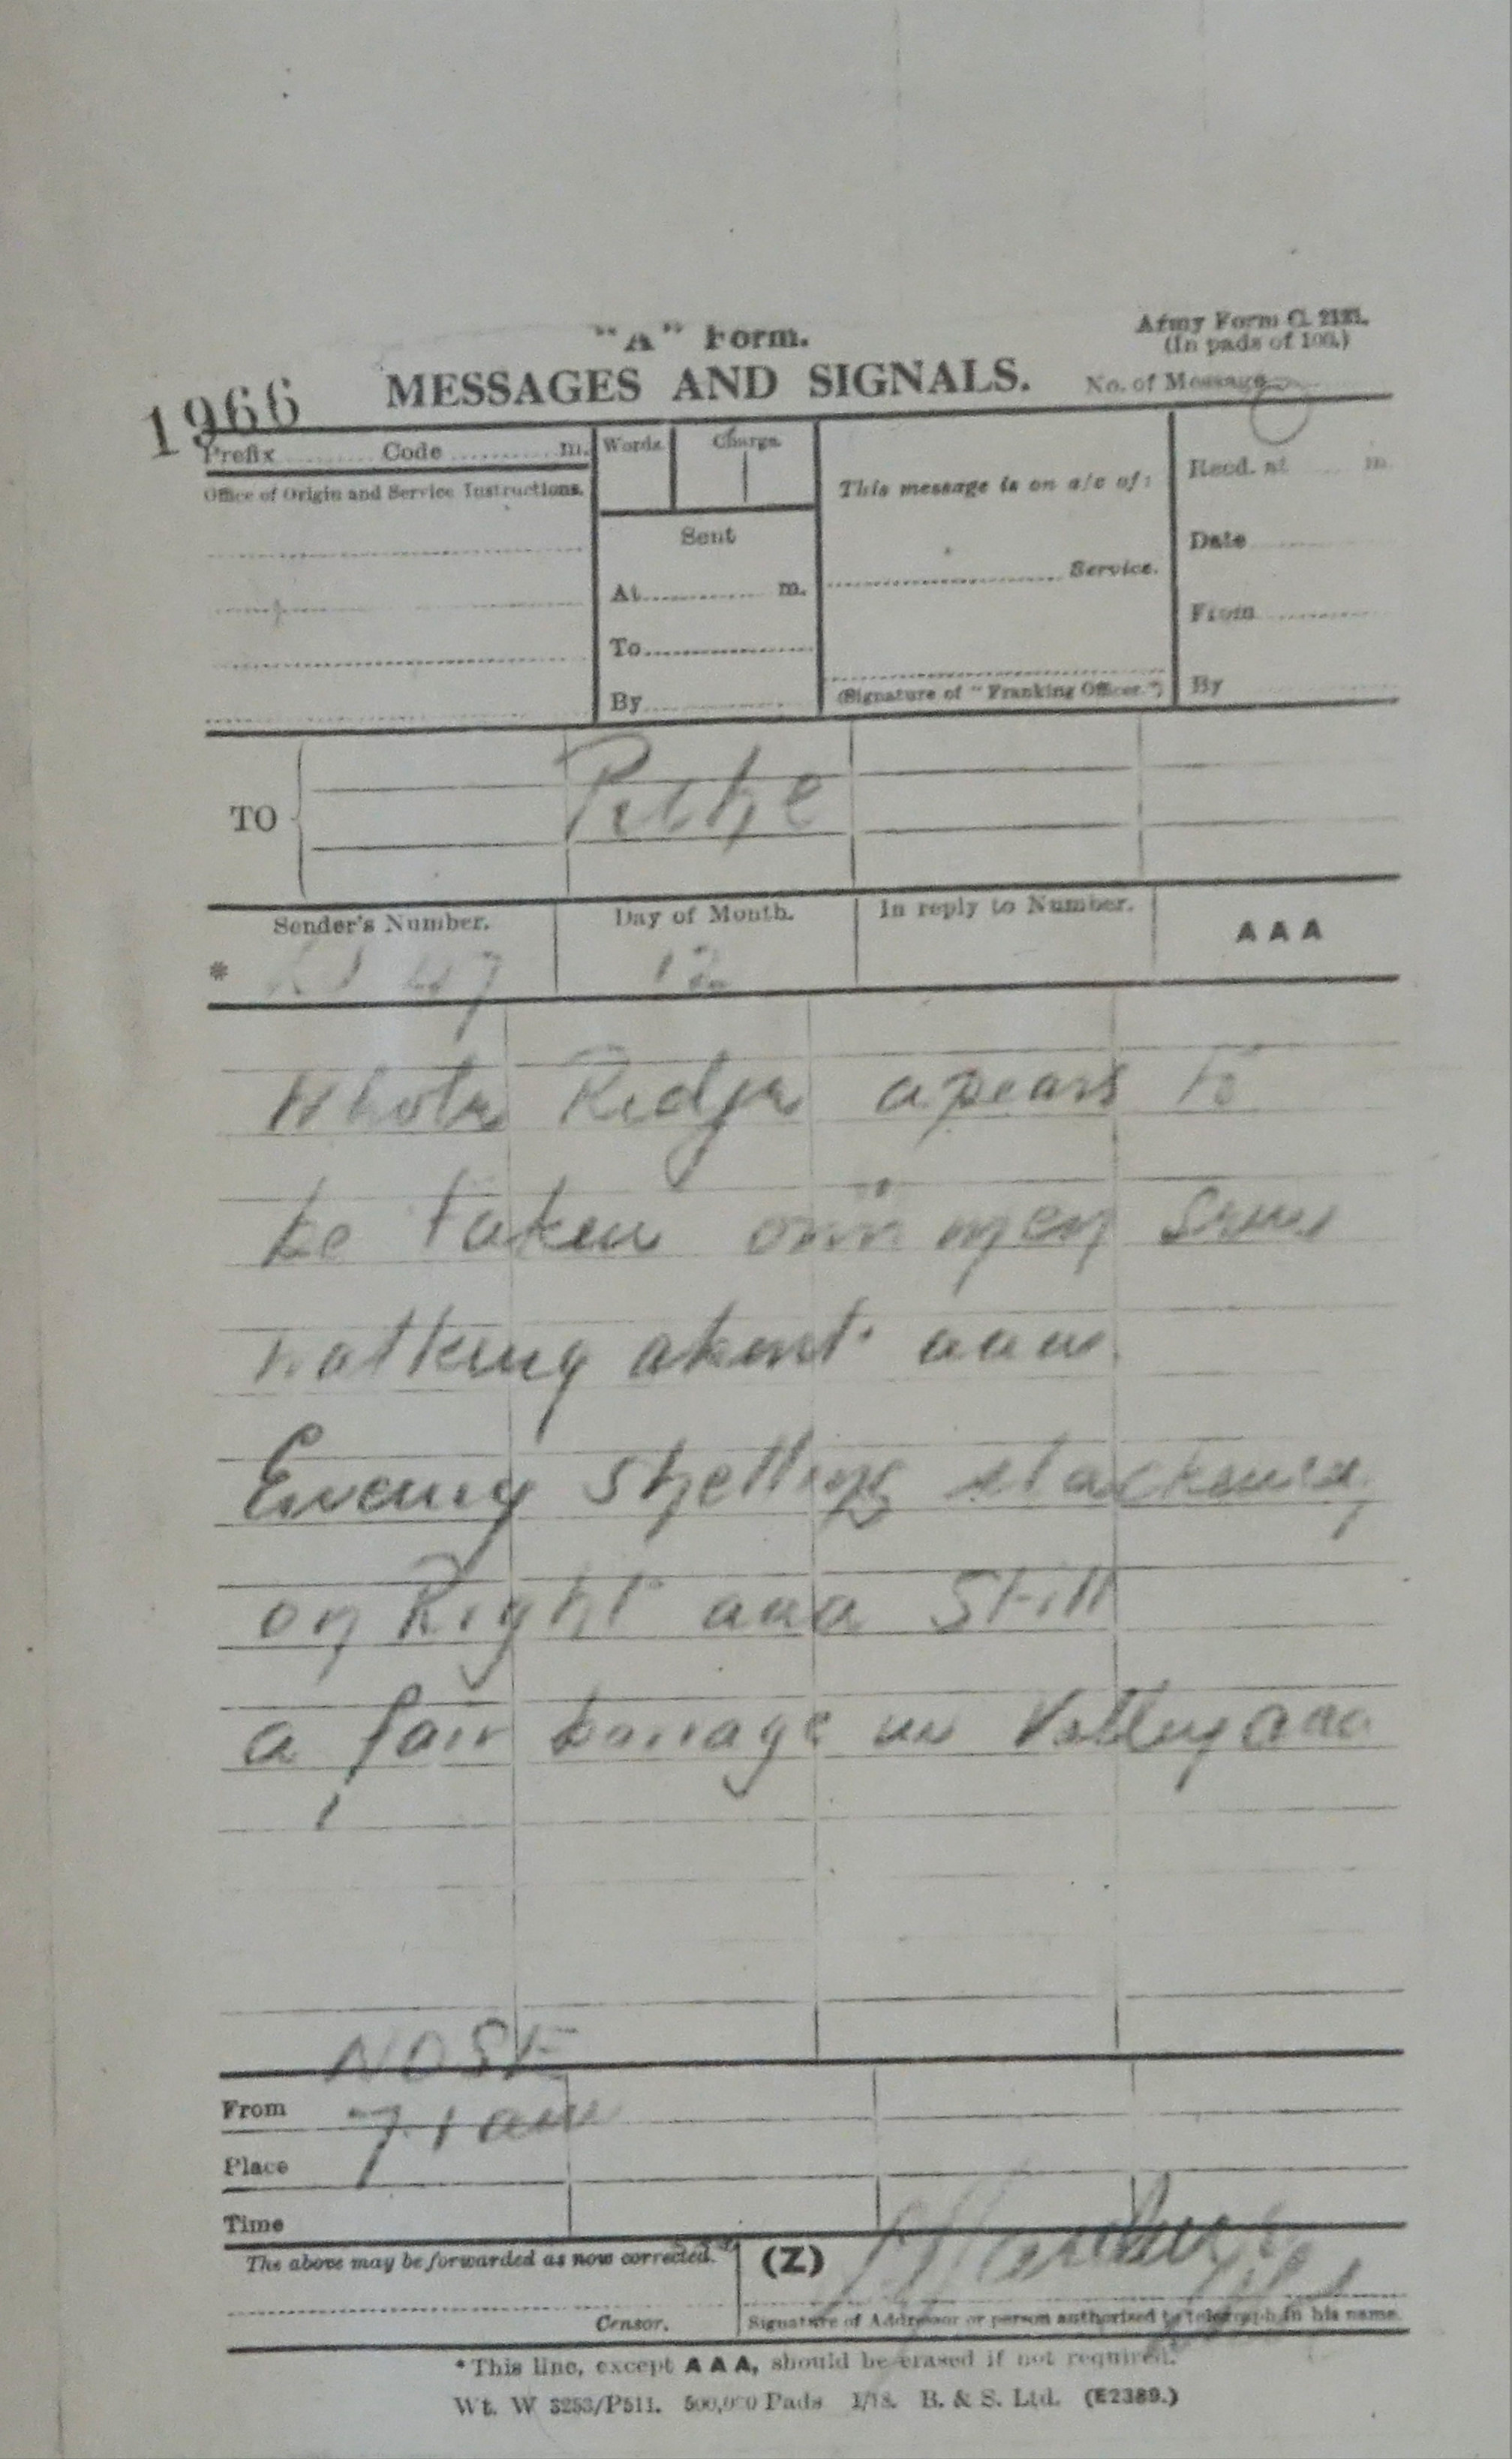 "A" Form.
Army Form C. 2121.
(In pads of 100.)
MESSAGES AND SIGNALS.
No. of Message
1966
Prefix Code m.
Words. Charge.
This message is on a/c of:
Recd. at m.
Office of Origin and Service Instructions.
Sent
Service.
Date
At m.
From
To
By
(Signature of "Franking Officer.")
By
TO
Sender's Number.
Day of Month.
In reply to Number.
AAA
* 47
12
Whole Ridge apears to
be taken our men
nothing about aaa
Enemy shelling slackening
on Right aaa Still
a fair barrage in Valley aaa
NOSE
From
7.1 am
Place
Time
The above may be forwarded as now corrected.
(Z)
Censor.
Signature of Addressor or person authorised to telegraph in his name.
*This line, except AAA, should be erased if not required.
Wt. W 3253/P511. 500,000 Pads 1/18. B. & S. Ltd. (E2389.)